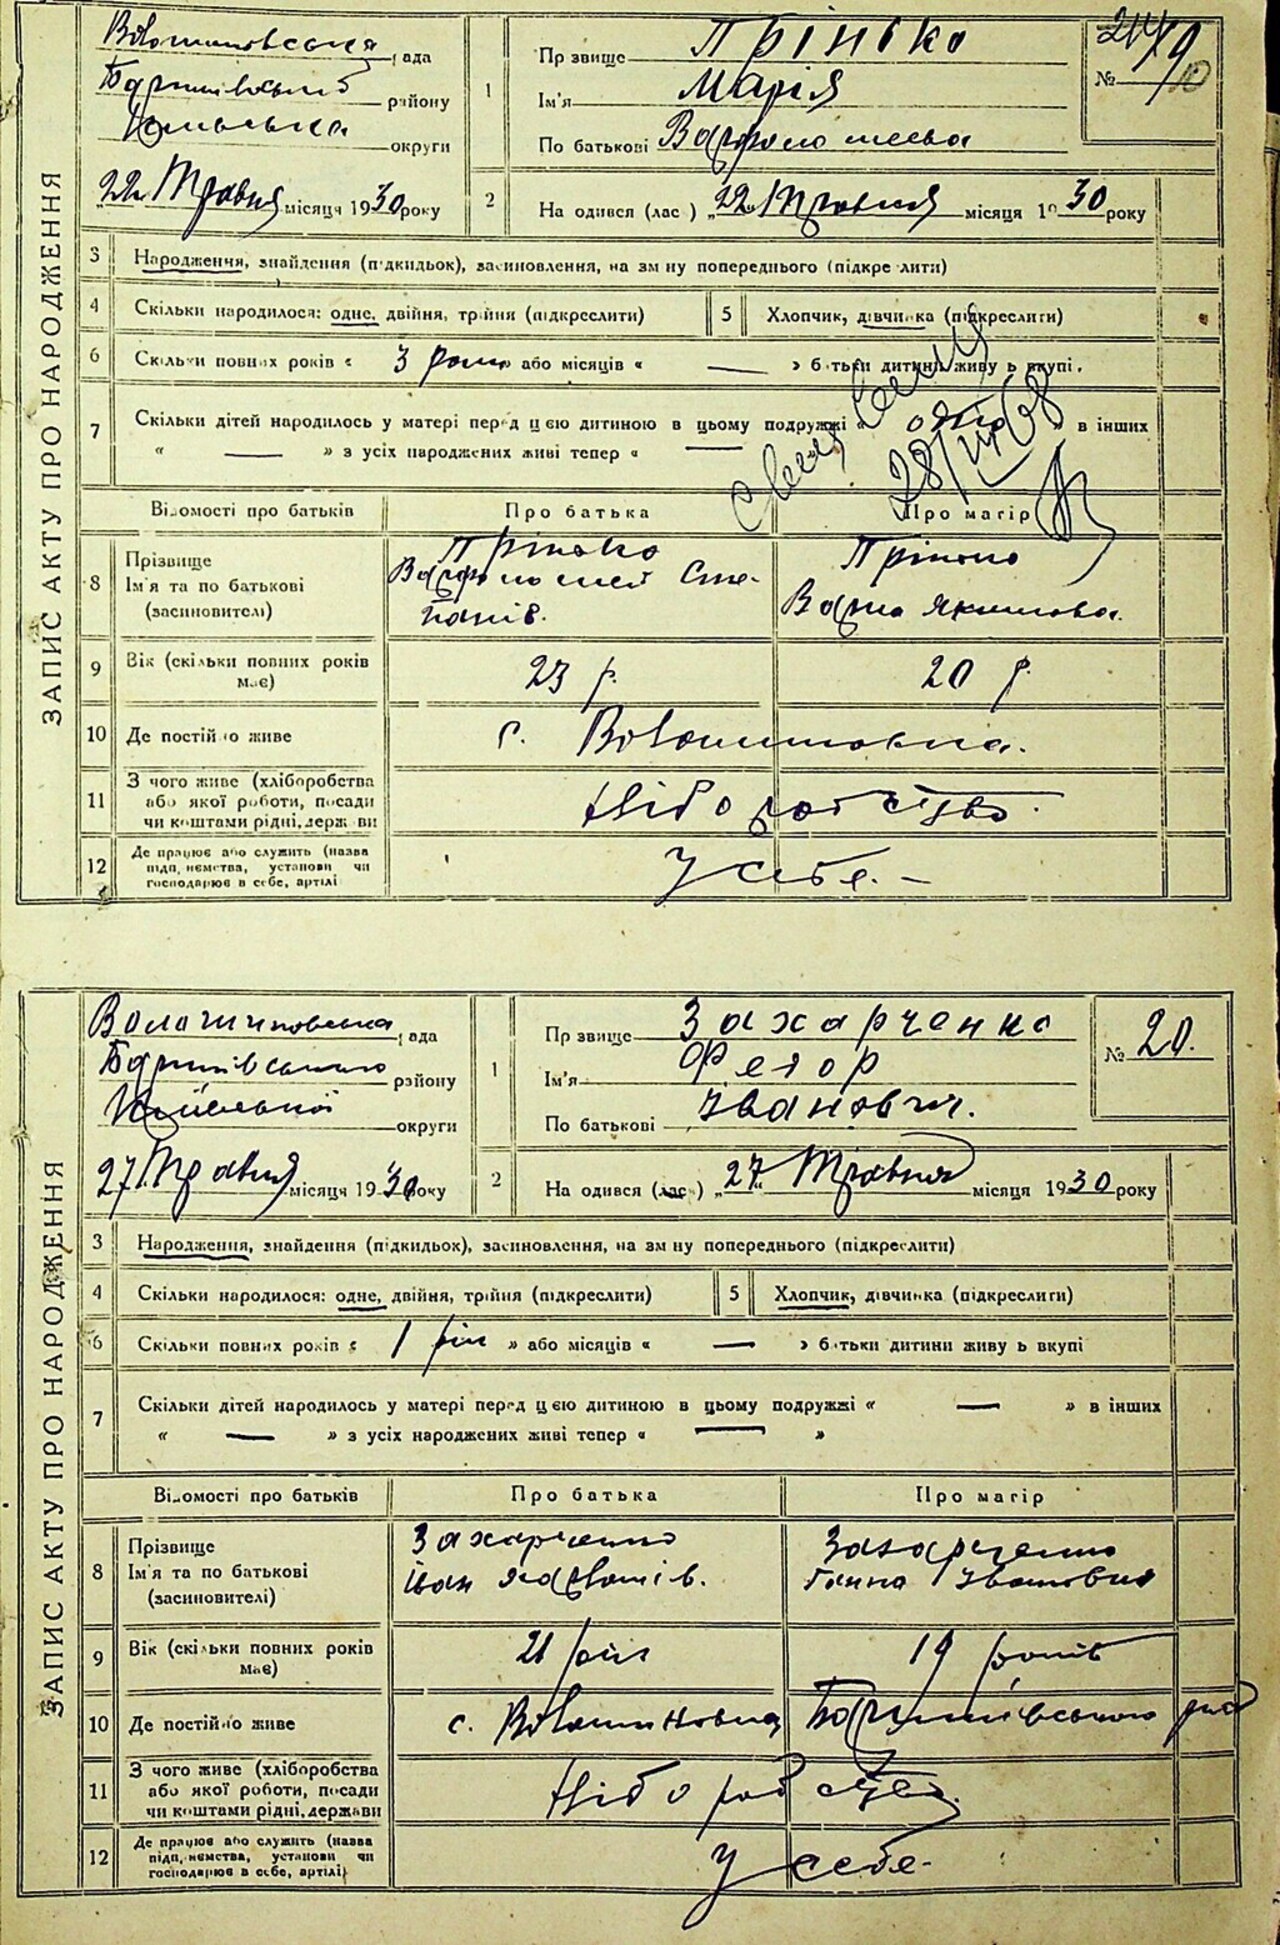 ЗАПИС АКТУ ПРО НАРОДЖЕННЯ
Волошиновська рада
Баришівський району
округи
22 Травня місяця 1930 року
1 Прізвище Прінько
Ім'я Марія
По батькові Варфоломеева
№ 19
2 На одився (лас ) „22 Травня місяця 1930 року
3 Народження, знайдення (підкидьок), засиновлення, на зм ну попереднього (підкре лити)
4 Скільки народилося: одне, двійня, трійня (підкреслити)
5 Хлопчик, дівчинка (підкреслити)
6 Скільки повних років « 3 роки або місяців « — » батьки дитини живу ь вкупі.
7 Скільки дітей народилось у матері перед цією дитиною в цьому подружжі « одно » в інших
« — » з усіх народжених живі тепер « —
28/
Відомості про батьків Про батька Про матір
8 Прізвище
Ім'я та по батькові
(засиновителі)
Прінько
Варфоломей Сте-
панів.
Прінько
Варка Якимова.
9 Вік (скільки повних років
має)
23 р. 20 р.
10 Де постійно живе с. Волошиновка.
11 З чого живе (хліборобства
або якої роботи, посади
чи коштами рідні, держ ви
Хліборобство.
12 Де працює або служить (назва
підп, ємства, установи чи
господарює в себе, артілі
У себе. –
ЗАПИС АКТУ ПРО НАРОДЖЕННЯ
Волошиновська рада
Баришівського району
Київської округи
27 Травня місяця 1930 року
1 Пр звище Захарченко
Ім'я Федор
По батькові Іванович.
№ 20.
2 На одився (лас ) „27„ Травня місяця 1930 року
3 Народження, знайдення (підкидьок), засиновлення, на зм ну попереднього (підкреслити)
4 Скільки народилося: одне, двійня, трійня (підкреслити)
5 Хлопчик, дівчинка (підкреслити)
6 Скільки повних років « 1 рік » або місяців « — » батьки дитини живу ь вкупі
7 Скільки дітей народилось у матері перед цією дитиною в цьому подружжі « — » в інших
« — » з усіх народжених живі тепер « — »
Відомості про батьків Про батька Про матір
8 Прізвище
Ім'я та по батькові
(засиновителі)
Захарченко
Іван
Захарченко
Ганна Івановна
9 Вік (скільки повних років
має)
21 рік 19 років
10 Де постійно живе с. Волошиновка Баришівського рай
11 З чого живе (хліборобства
або якої роботи, посади
чи коштами рідні, держави
Хліборобство.
12 Де працює або служить (назва
підп, ємства, установи чи
господарює в себе, артілі)
У себе-